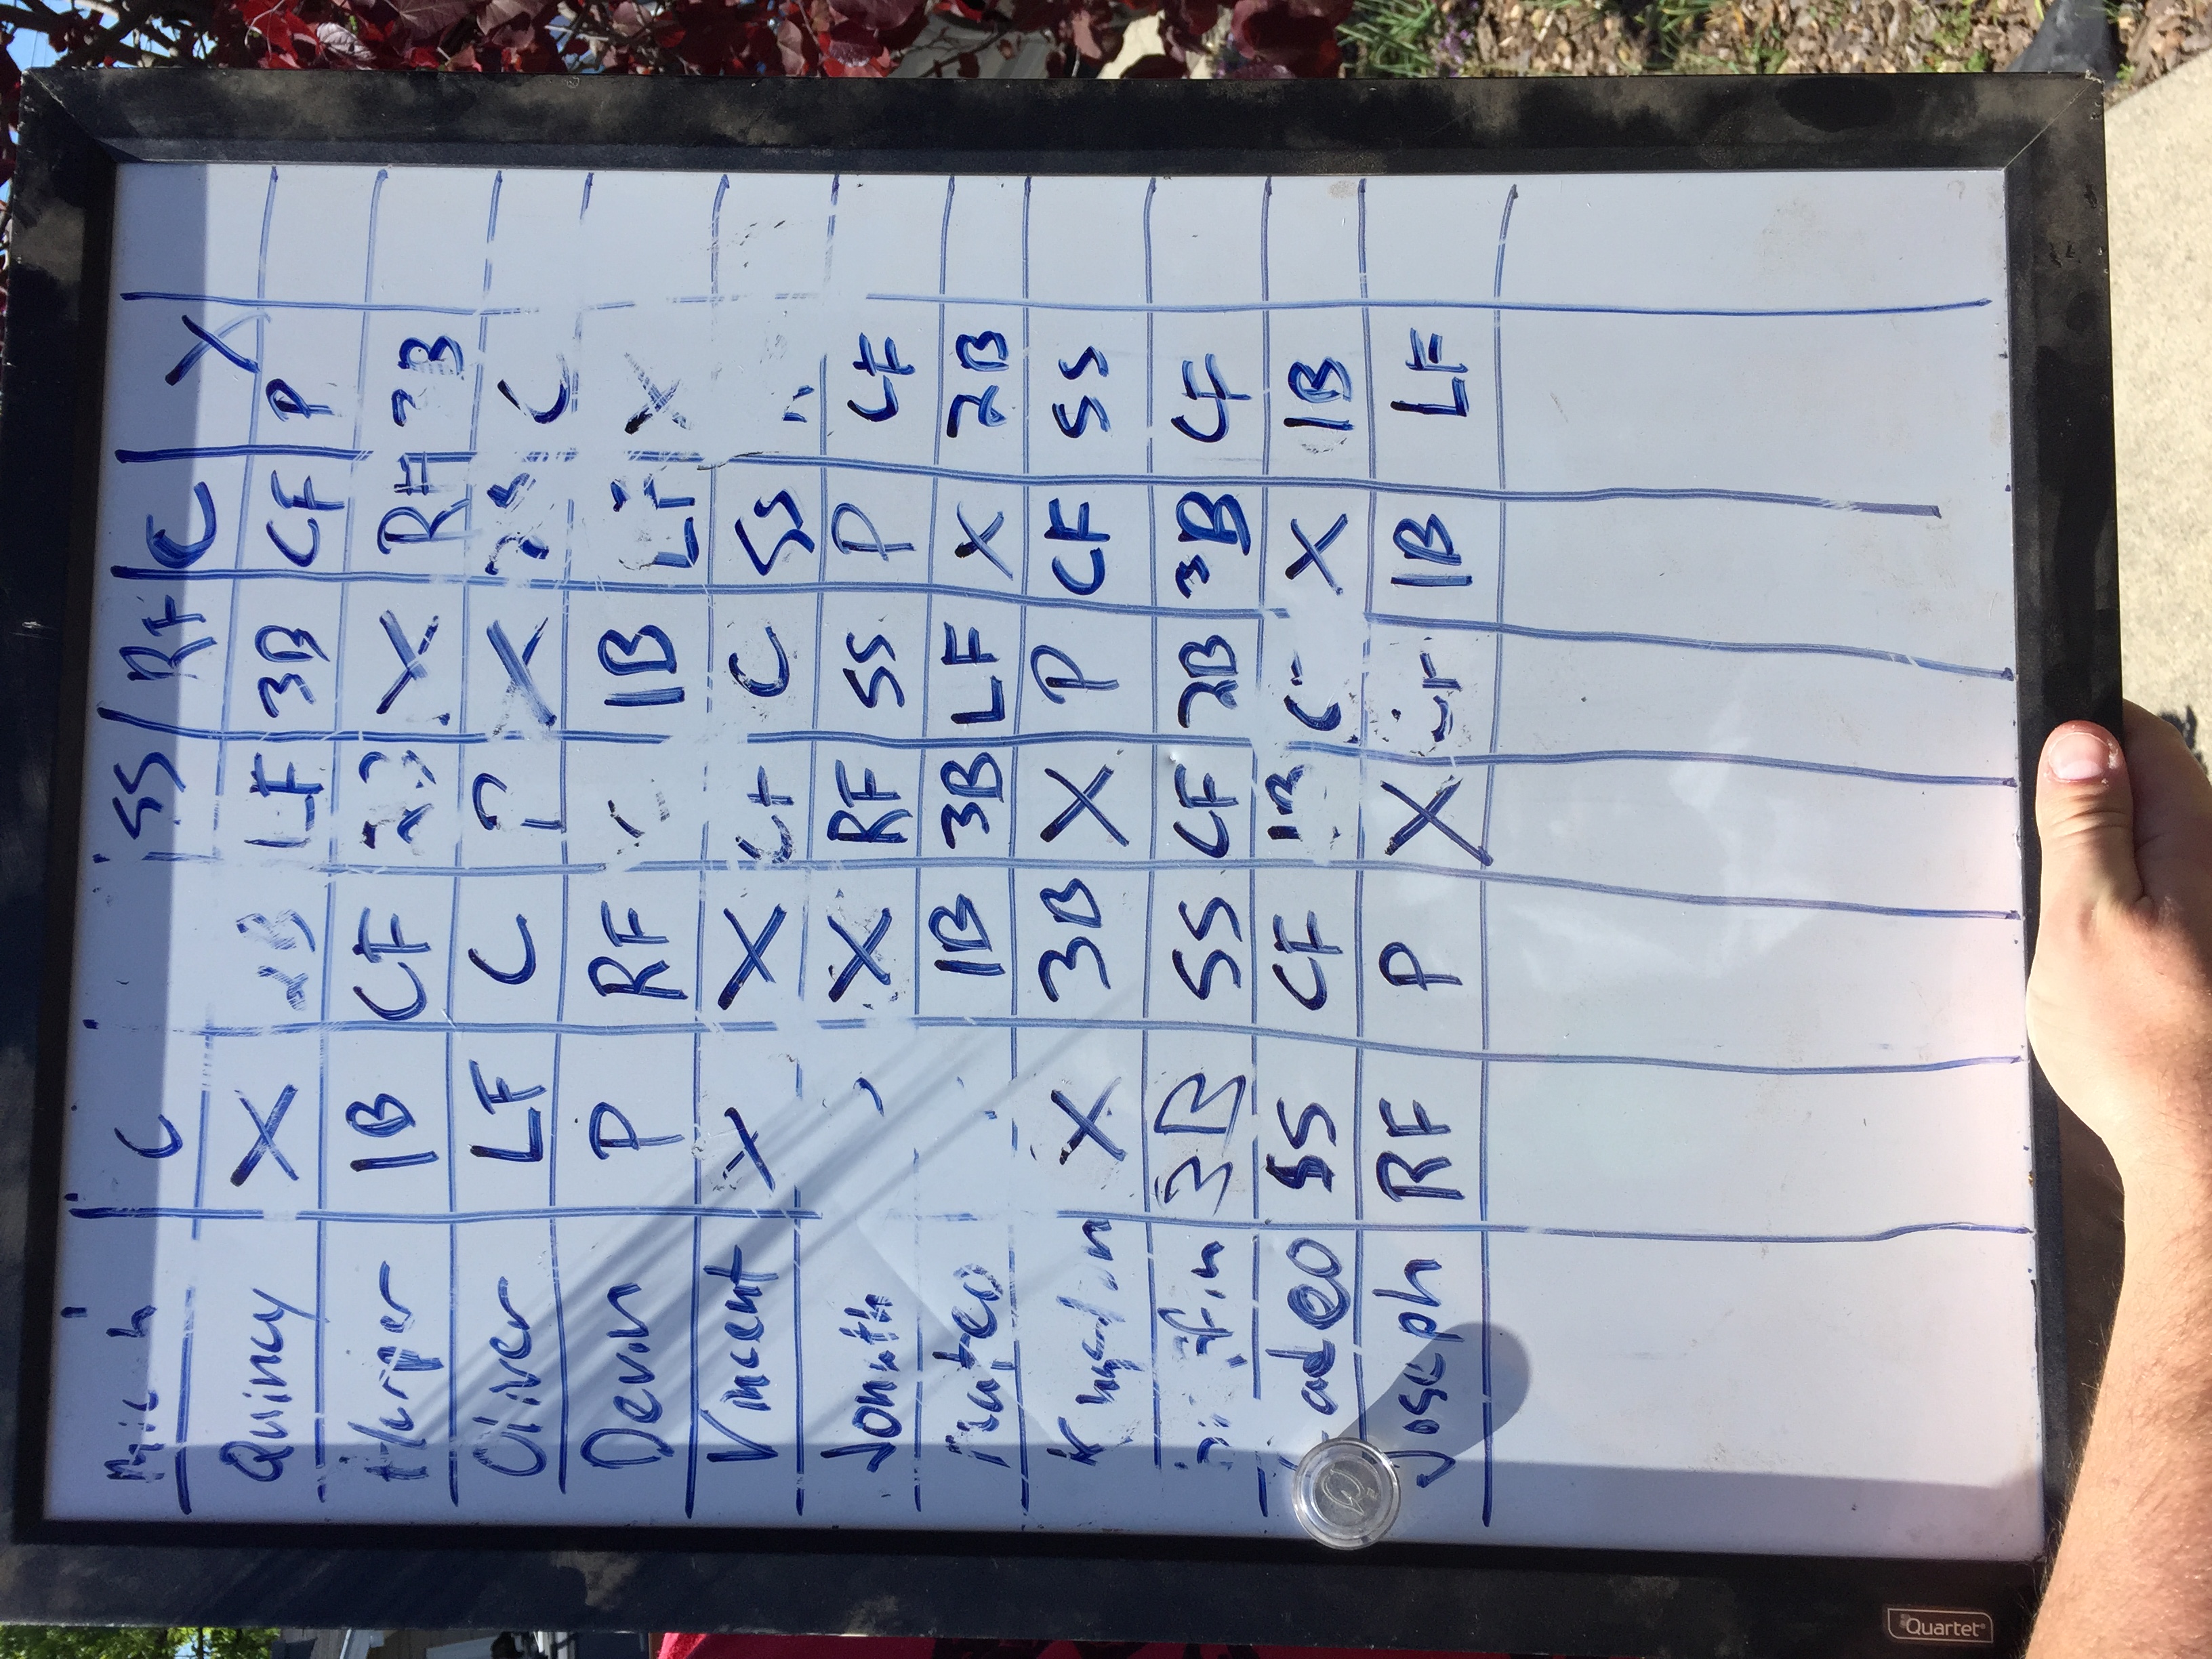 C SS RF C X
Quincy X 2B LF 3B CF P
Harper 1B CF X RF
Oliver LF C P X C
Devin P RF 1B LF X
Vincent X X CF C SS
X RF SS P CF
Mateo 1B 3B LF X 2B
X 3B X P CF SS
3B SS CF 2B 3B CF
SS CF 1B X 1B
Joseph RF P X 1B LF
Quartet